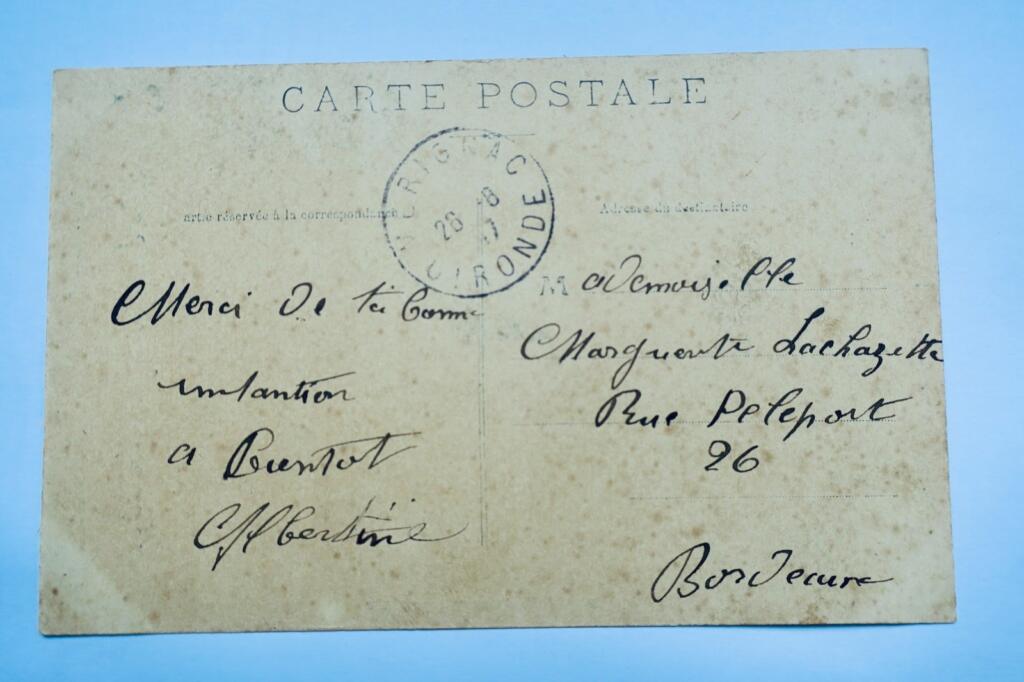 CARTE POSTALE
MERIGNAC
26 -8
7
GIRONDE
artie réservée à la correspondance
Adresse du destinataire
Merci de ta bonne
a Bientot
Albertine
Mademoiselle
Marguerite Lachazette
Rue Peleport
26
Bordeaux